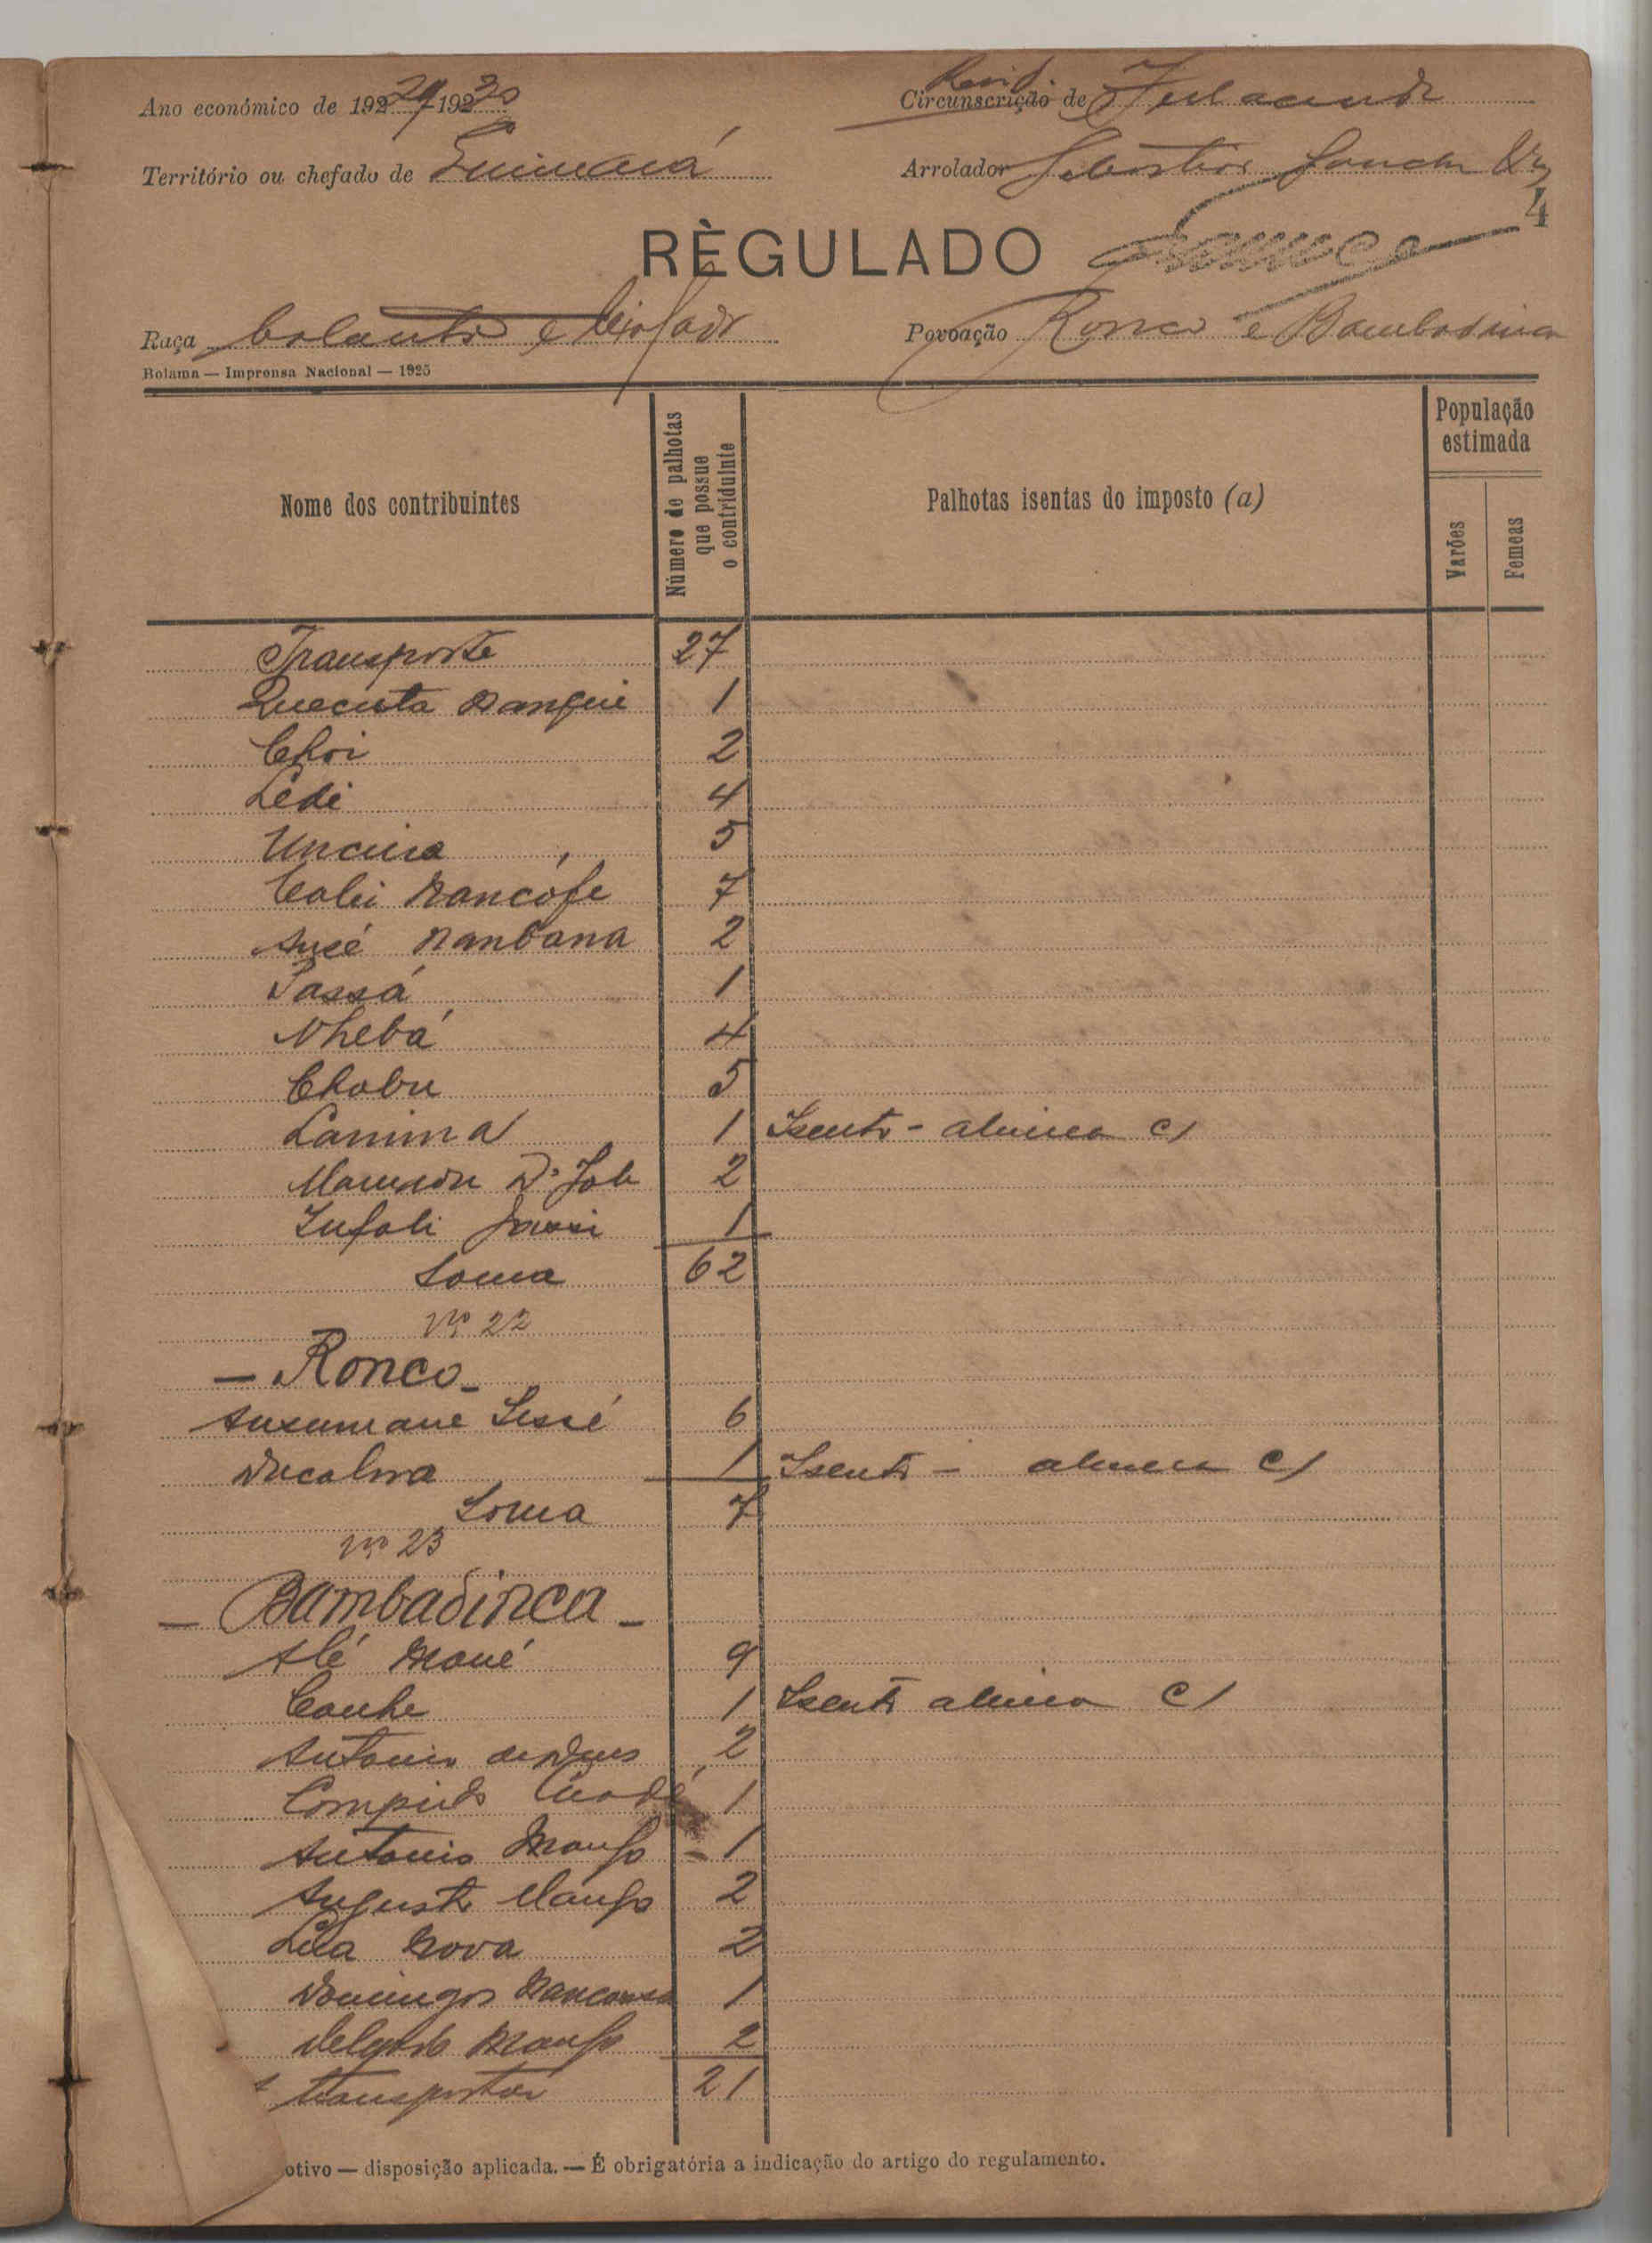 Ano económico de 1929/1930
Resid. Circunscrição de Fulacunda
Território ou chefado de Guinalá
Arrolador Sebastião
4
RÈGULADO
Raça balanta e biafada
Povoação Ronco e Bambadinca
Bolama — Imprensa Nacional — 1925
Nome dos contribuintes
Número de palhotas que possue o contriduinte
Palhotas isentas do imposto (a)
População estimada
Varões
Femeas
Transporte 27
Quecuta Nangué 1
Choi 2
Ledi 4
Uncuia 5
Calii Nancófe 7
Ansé Nanbana 2
Passá 1
Nhebá 4
Chobu 5
Lamina 1 Isento - alinea c)
Mamadu D'Jaló 2
Infali 1
Soma 62
Nº 22
— Ronco —
Ansumane Sessé 6
Ducalma 1 Isento - alinea c)
Soma 7
Nº 23
— Bambadinca —
Alé Mané 9
Canhe 1 Isento alinea c)
Antonio 2
1
Antonio Manfo - 1
Augusto Manfo 2
Lua Nova 2
Domingos 1
Delgado Manfo 2
A transportar 21
otivo — disposição aplicada. — É obrigatória a indicação do artigo do regulamento.